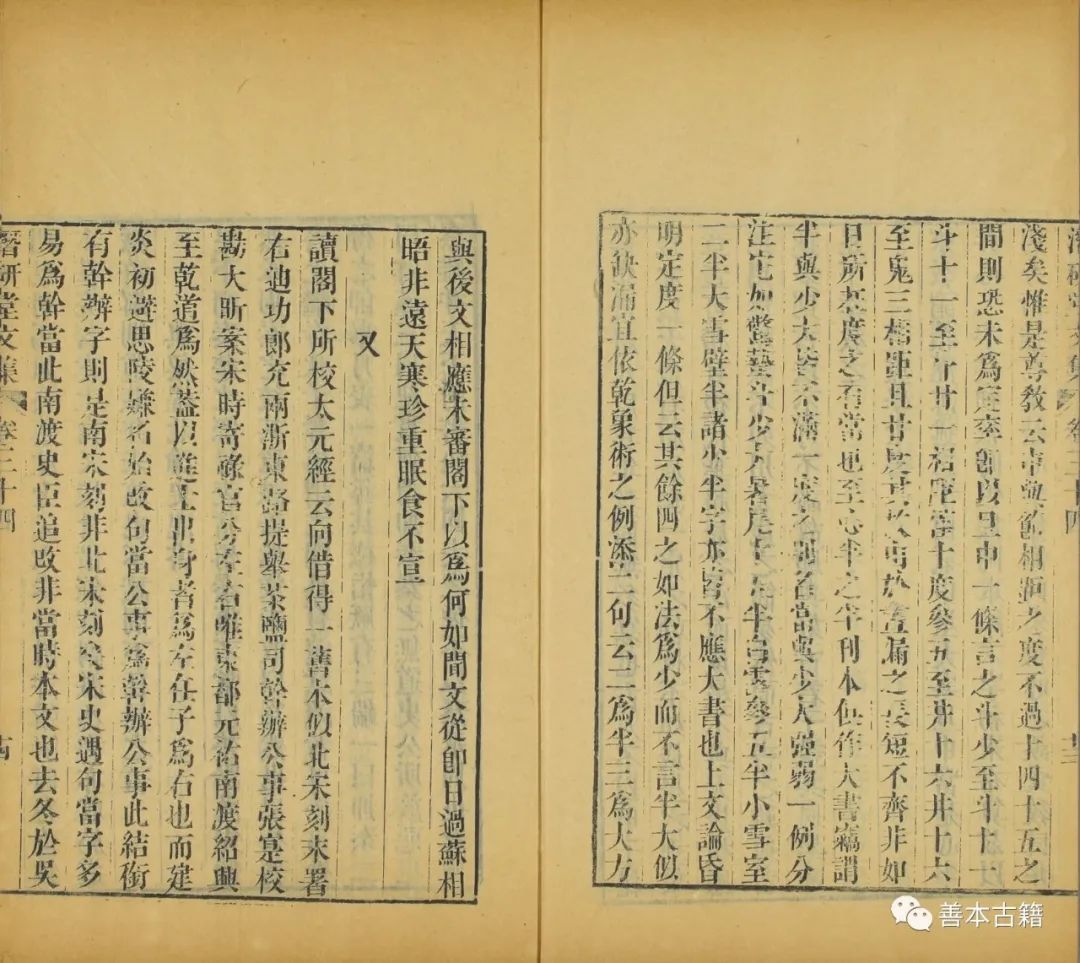 淺矣惟是尊教云中氣節相距之度不過十四十五之
間則恐未爲定率卽以旦中一條言之斗少至斗十一
斗十一至斗廿一相距落十度參五至井十六井十六
至鬼三相距且廿度其故由於晝漏之長短不齊非如
日所在度之有常也至心半之半刊本俱作大書竊謂
半與少大皆不滿一度之別名當與少大強弱一例分
注它如驚蟄斗少大暑尾十五半白露參五半小雪室
二半大雪壁半諸少半字亦皆不應大書也上文論昏
明定度一條但云其餘四之如法爲少而不言半大似
亦缺漏宜依乾象術之例添二句云二爲半三爲大方
與後文相應未審閣下以爲何如間文從卽日過蘇相
晤非遠天寒珍重眠食不宣
又
讀閣下所校太元經云向借得一舊本似北宋刻末署
右迪功郎充兩浙東路提舉茶鹽司幹辦公事張寔校
勘大昕案宋時寄祿官分左右唯東都元祐南渡紹興
至乾道爲然蓋以進士出身者爲左任子爲右也而建
炎初避思陵嫌名始改句當公事爲幹辦公事此結銜
有幹辦字則是南宋刻非北宋刻矣宋史遇句當字多
易爲幹當此南渡史臣追改非當時本文也去冬於吳
潛研堂文集 卷三十四
善本古籍